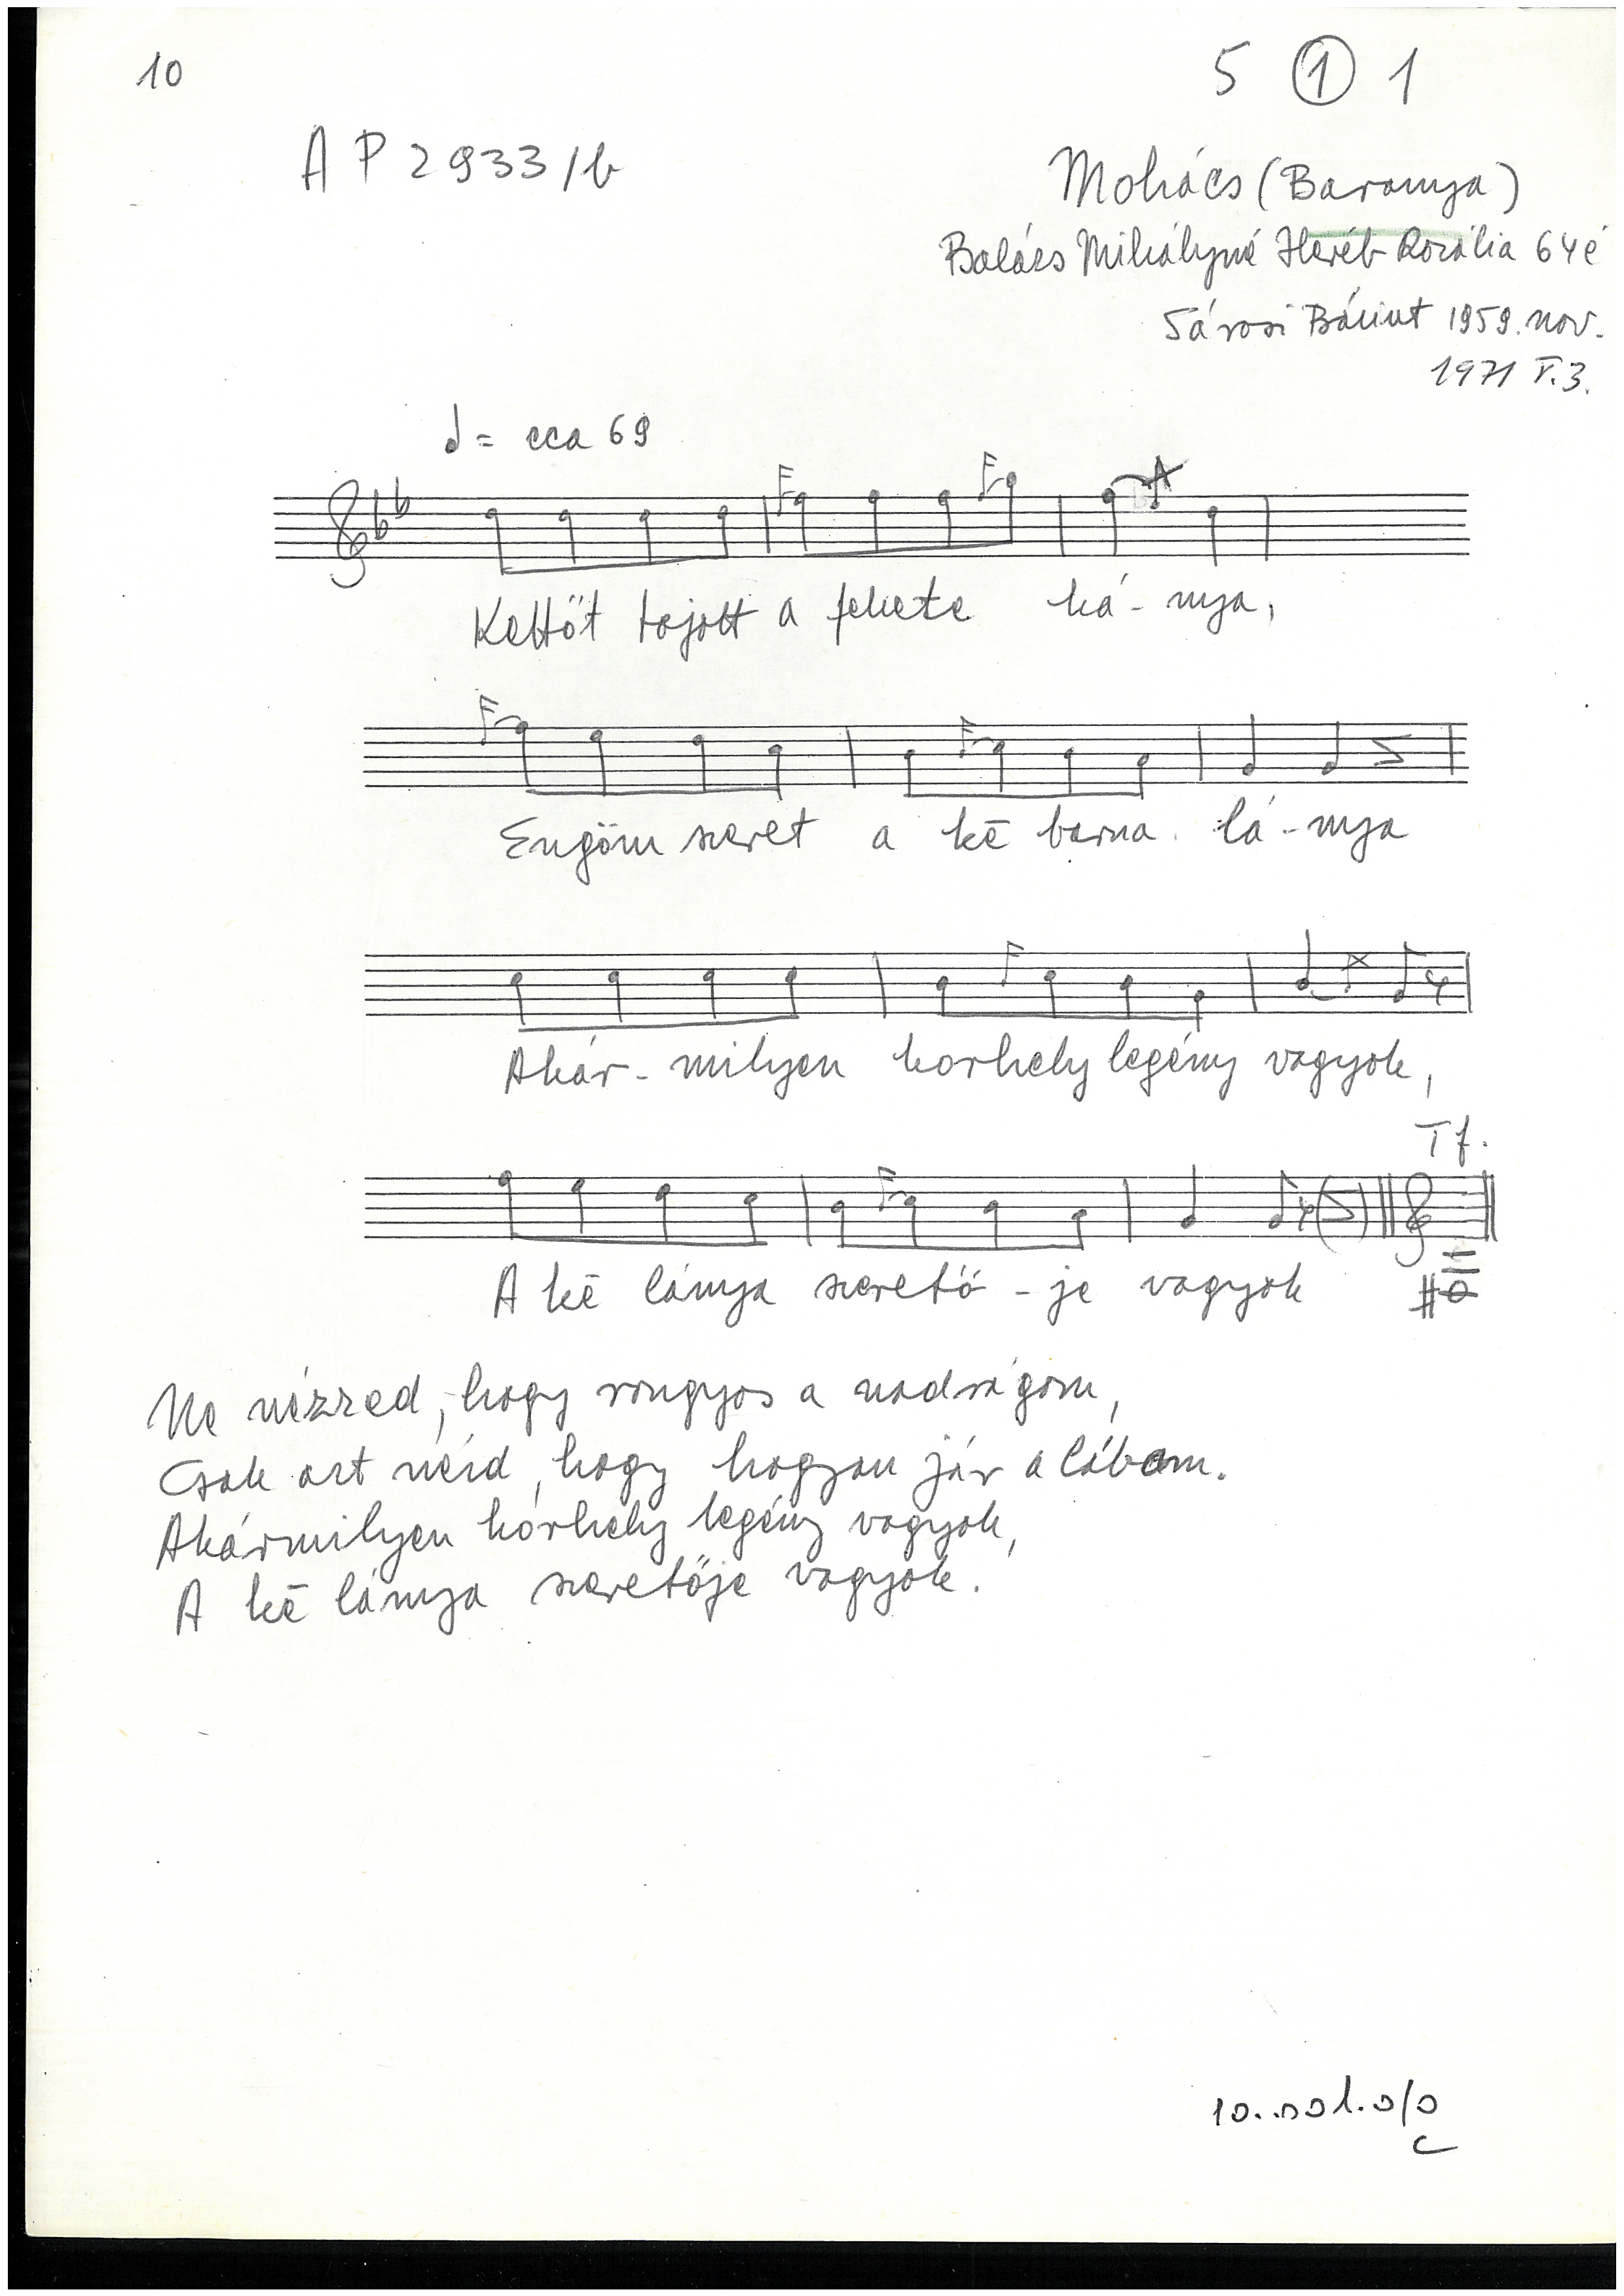 10
5 1 1
AP 2933/b
Mohács (Baranya)
Balázs Mihályné Heréb Rozália 64 é
Sárosi Bálint 1959. nov.
1971 V. 3.
= cca 69
Kettőt tojott a fekete ká - nya,
Engöm szeret a kē barna lá - nya
Akár - milyen korhely legény vagyok,
Tf.
A kē lánya szerető - je vagyok
Ne nézzed, hogy rongyos a nadrágom,
Csak azt nézd, hogy hogyan jár a lábom.
Akármilyen korhely legény vagyok,
A kē lánya szeretője vagyok.